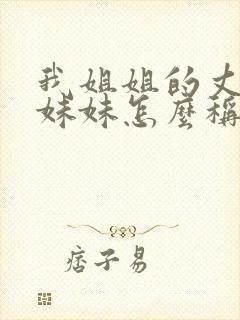 我姐姐的丈
妹妹怎麼稱
痞子易